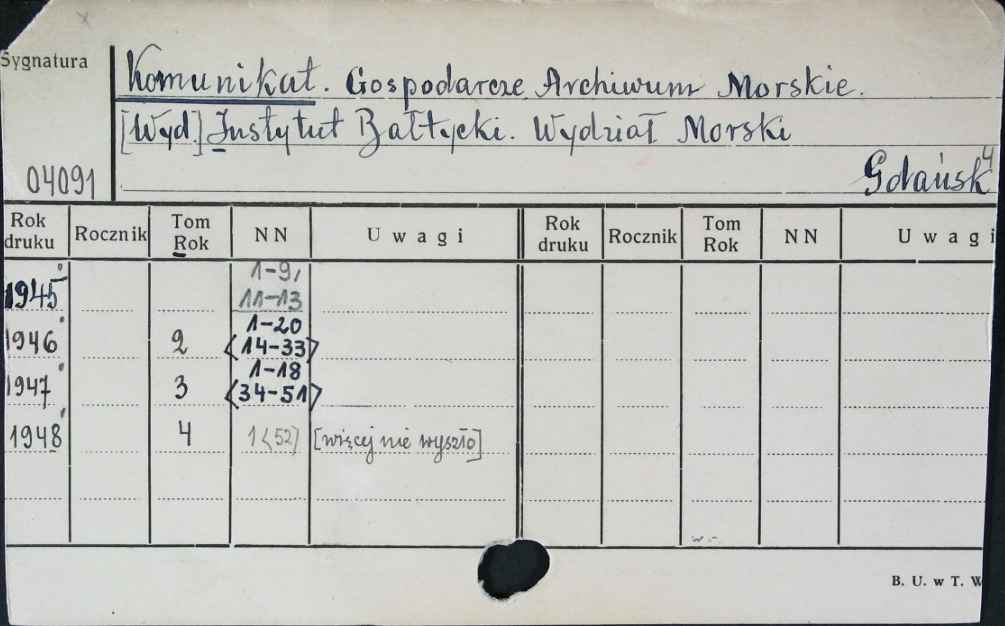 Sygnatura
Komunikat. Gospodarcze Archiwum Morskie.
[Wyd.] Instytut Bałtycki. Wydział Morski
04091 Gdańsk 4
Rok druku Rocznik Tom Rok NN Uwagi Rok druku Rocznik Tom Rok NN Uwagi
1945 1-9, 11-13
1946 2 1-20 <14-33>
1947 3 1-18 <34-51>
1948 4 1<52> [więcej nie wyszło]
B. U. w T. W